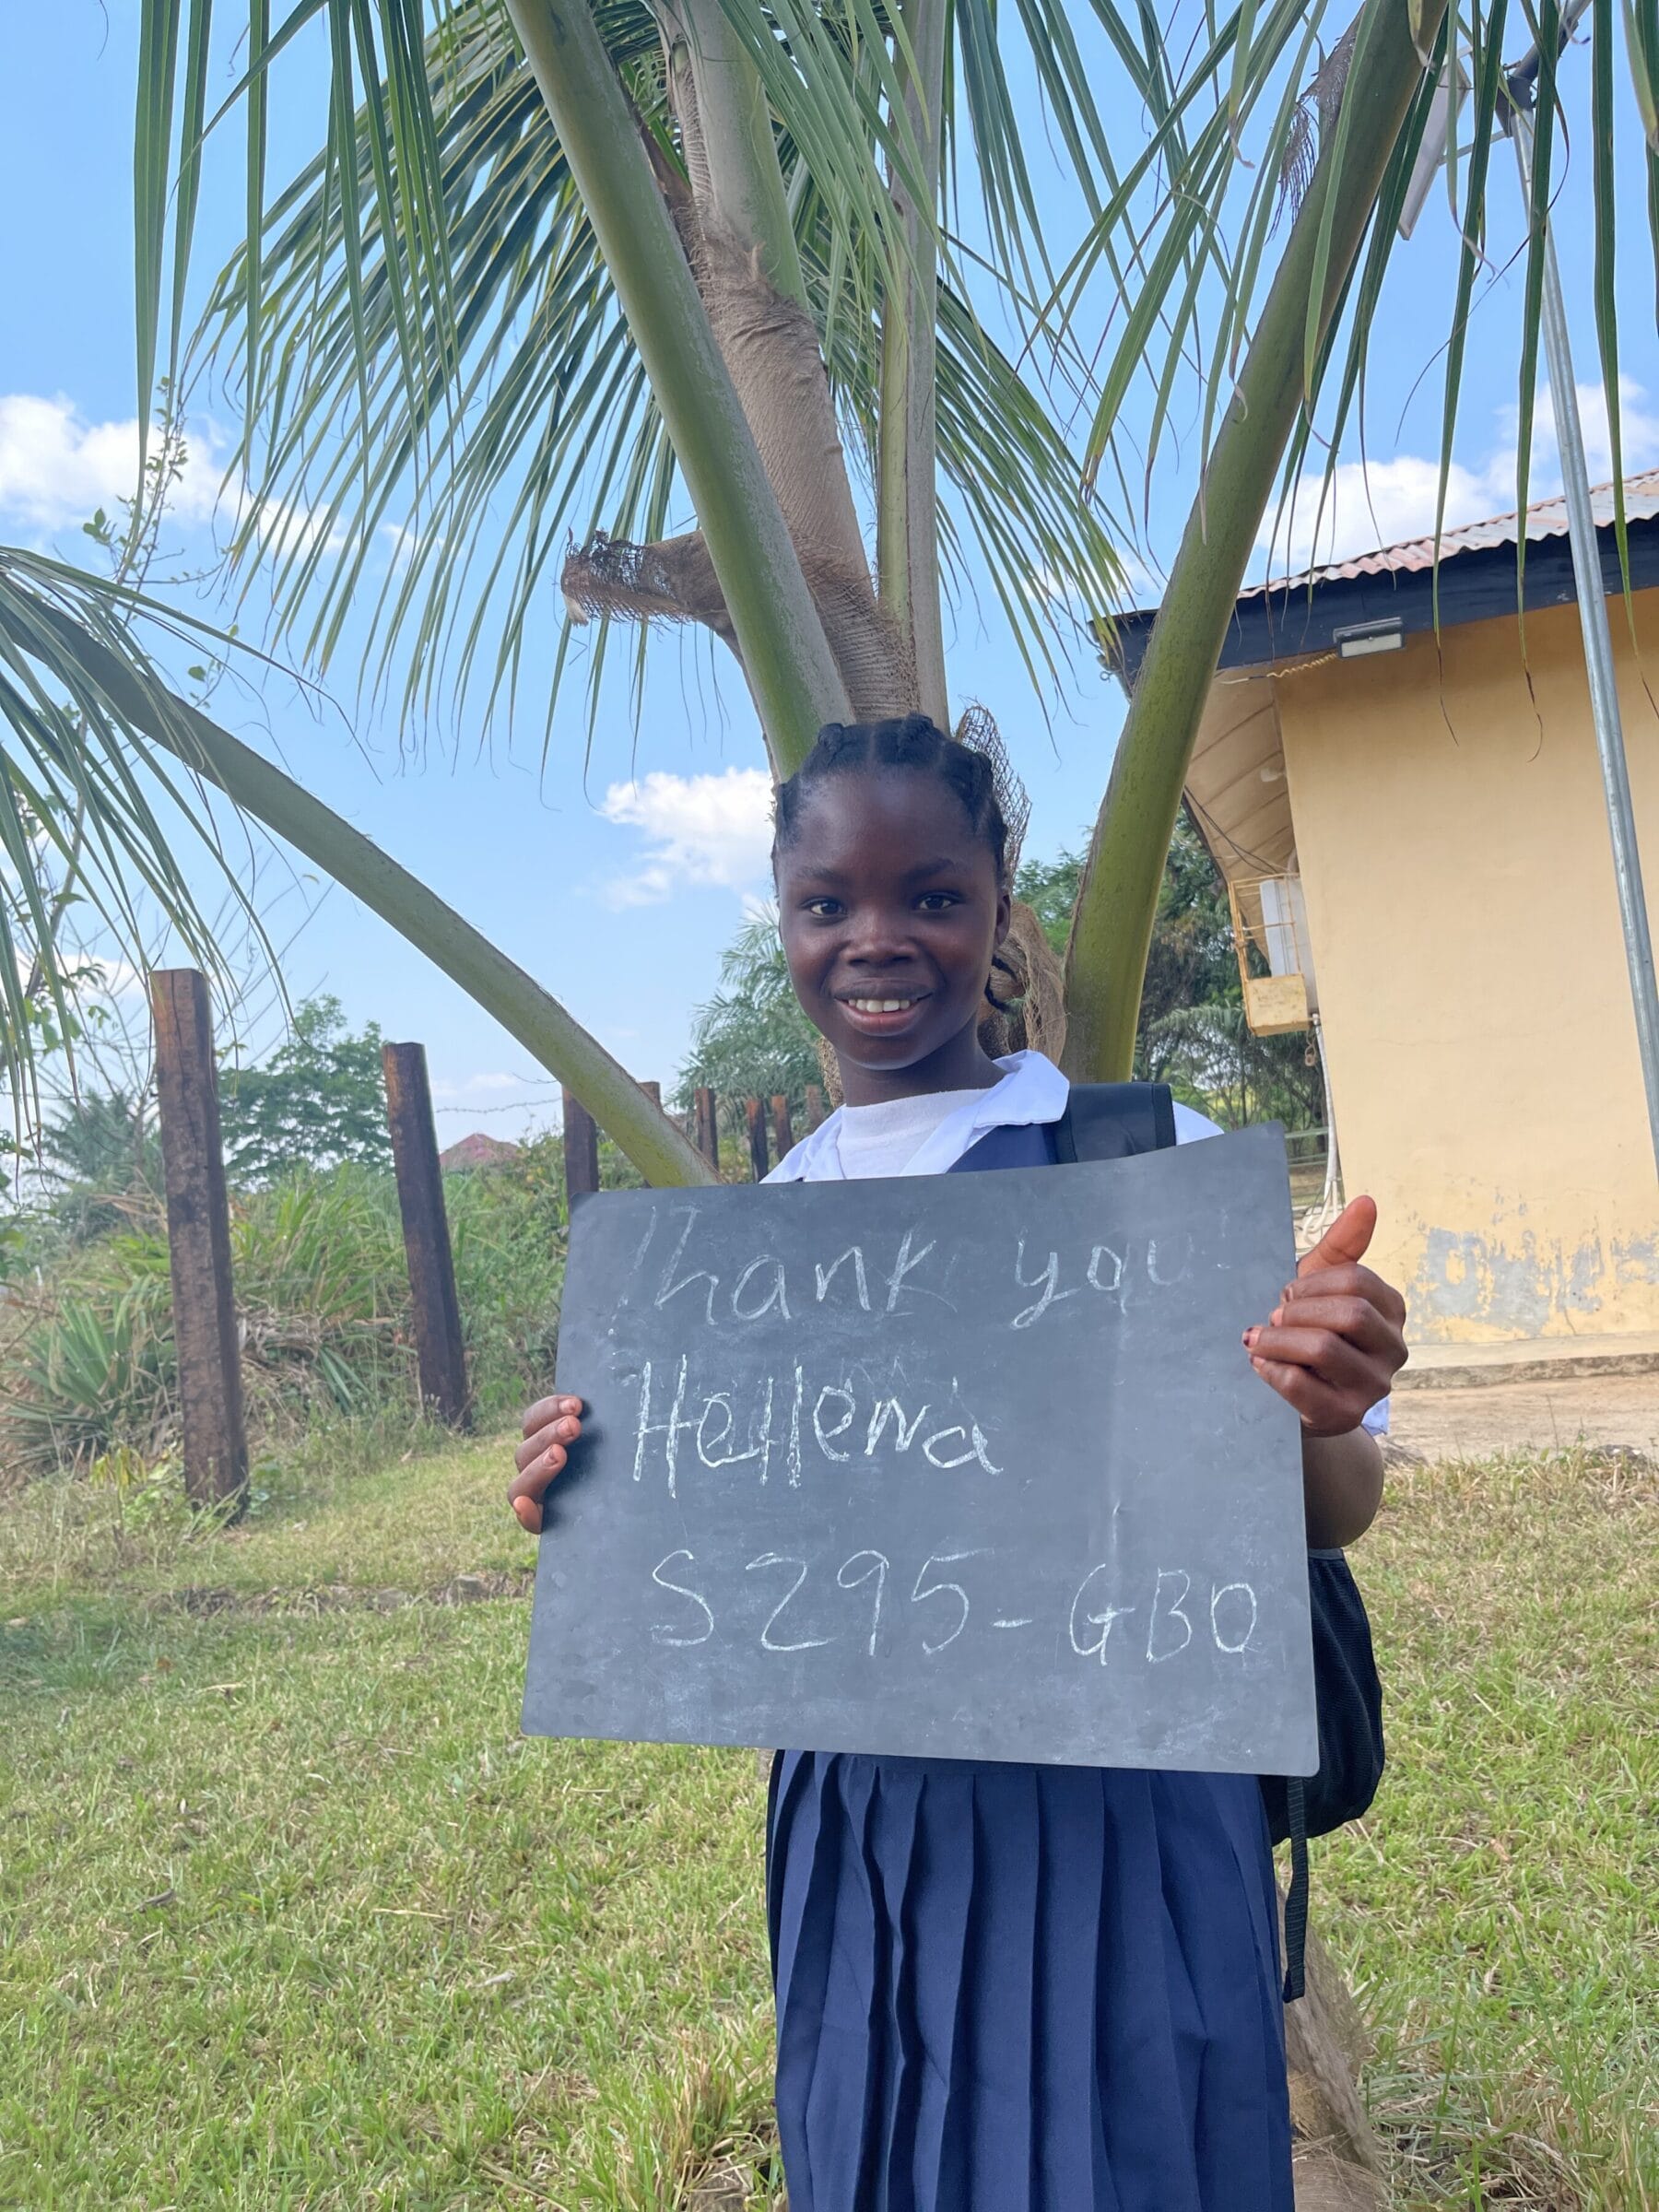 Thank you
Hellena
S295-GBQ